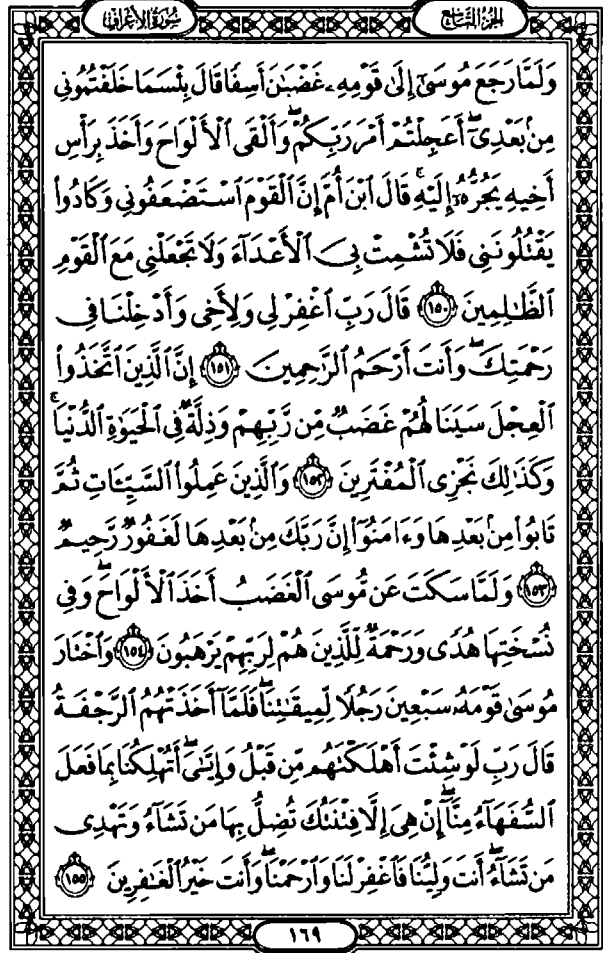 سُورَةُ الأَعْرَافِ الجُزْءُ التَّاسِعُ
وَلَمَّا رَجَعَ مُوسَىٰٓ إِلَىٰ قَوْمِهِۦ غَضْبَٰنَ أَسِفًا قَالَ بِئْسَمَا خَلَفْتُمُونِى
مِنۢ بَعْدِىٓ ۖ أَعَجِلْتُمْ أَمْرَ رَبِّكُمْ ۖ وَأَلْقَى ٱلْأَلْوَاحَ وَأَخَذَ بِرَأْسِ
أَخِيهِ يَجُرُّهُۥٓ إِلَيْهِ ۚ قَالَ ٱبْنَ أُمَّ إِنَّ ٱلْقَوْمَ ٱسْتَضْعَفُونِى وَكَادُوا۟
يَقْتُلُونَنِى فَلَا تُشْمِتْ بِىَ ٱلْأَعْدَآءَ وَلَا تَجْعَلْنِى مَعَ ٱلْقَوْمِ
ٱلظَّٰلِمِينَ ١٥٠ قَالَ رَبِّ ٱغْفِرْ لِى وَلِأَخِى وَأَدْخِلْنَا فِى
رَحْمَتِكَ ۖ وَأَنتَ أَرْحَمُ ٱلرَّٰحِمِينَ ١٥١ إِنَّ ٱلَّذِينَ ٱتَّخَذُوا۟
ٱلْعِجْلَ سَيَنَالُهُمْ غَضَبٌ مِّن رَّبِّهِمْ وَذِلَّةٌ فِى ٱلْحَيَوٰةِ ٱلدُّنْيَا ۚ
وَكَذَٰلِكَ نَجْزِى ٱلْمُفْتَرِينَ ١٥٢ وَٱلَّذِينَ عَمِلُوا۟ ٱلسَّيِّـَٔاتِ ثُمَّ
تَابُوا۟ مِنۢ بَعْدِهَا وَءَامَنُوٓا۟ إِنَّ رَبَّكَ مِنۢ بَعْدِهَا لَغَفُورٌ رَّحِيمٌ
١٥٣ وَلَمَّا سَكَتَ عَن مُّوسَى ٱلْغَضَبُ أَخَذَ ٱلْأَلْوَاحَ ۖ وَفِى
نُسْخَتِهَا هُدًى وَرَحْمَةٌ لِّلَّذِينَ هُمْ لِرَبِّهِمْ يَرْهَبُونَ ١٥٤ وَٱخْتَارَ
مُوسَىٰ قَوْمَهُۥ سَبْعِينَ رَجُلًا لِّمِيقَٰتِنَا ۖ فَلَمَّآ أَخَذَتْهُمُ ٱلرَّجْفَةُ
قَالَ رَبِّ لَوْ شِئْتَ أَهْلَكْتَهُم مِّن قَبْلُ وَإِيَّٰىَ ۖ أَتُهْلِكُنَا بِمَا فَعَلَ
ٱلسُّفَهَآءُ مِنَّآ ۖ إِنْ هِىَ إِلَّا فِتْنَتُكَ تُضِلُّ بِهَا مَن تَشَآءُ وَتَهْدِى
مَن تَشَآءُ ۖ أَنتَ وَلِيُّنَا فَٱغْفِرْ لَنَا وَٱرْحَمْنَا ۖ وَأَنتَ خَيْرُ ٱلْغَٰفِرِينَ ١٥٥
١٦٩